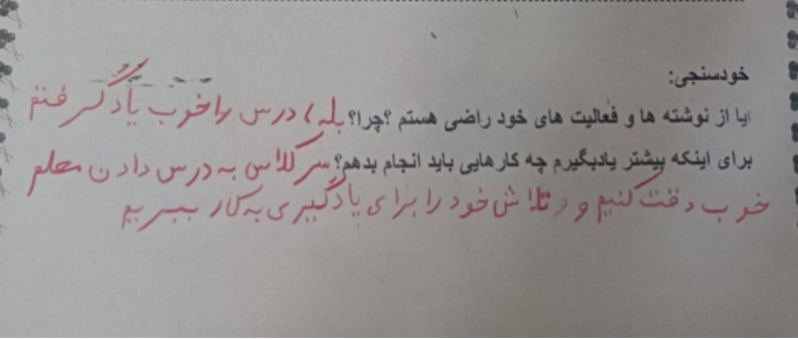 خودسنجی:
ایا از نوشته ها و فعالیت های خود راضی هستم ؟چرا؟ بله، درس را خوب یاد گرفتم
برای اینکه بیشتر یادبگیرم چه کارهایی باید انجام بدهم؟ سر کلاس به درس دادن معلم
خوب دقت کنیم و و تلاش خود را برای یادگیری به کار ببریم